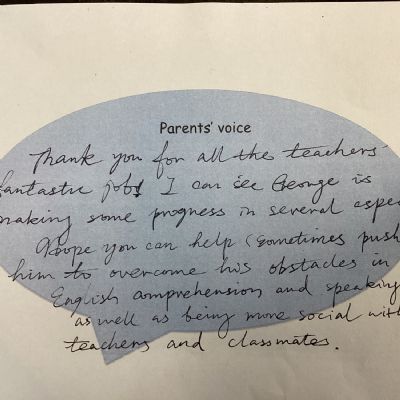 Parents' voice
Thank you for all the teachers'
fantastic job! I can see George is
making some progress in several aspec
I hope you can help (sometimes push
him to overcome his obstacles in
English comprehension and speaking
as well as being more social with
teachers and classmates.